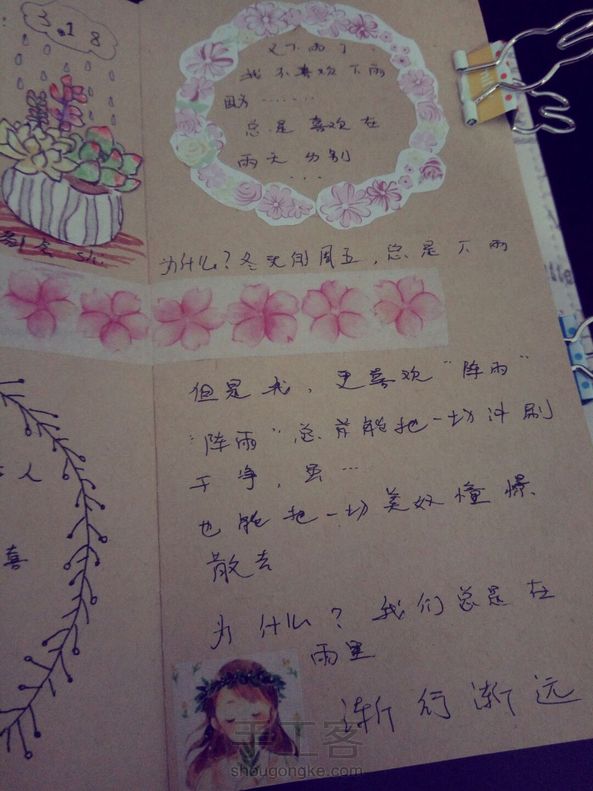 3.18
又下雨了
我不喜欢下雨
因为······
总是喜欢在
雨天分别
···
shi
为什么？冬天的周五，总是下雨
但是我，更喜欢"阵雨"
"阵雨"总能把一切冲刷
干净，虽···
也能把一切美好憧憬
散去
人
喜
为什么？我们总是在
雨里
渐行渐远
手工客
shougongke.com